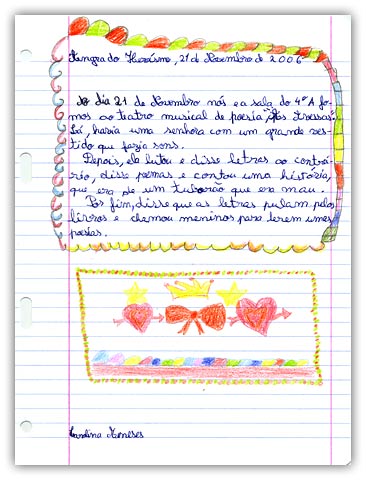 Angra do Heroísmo, 21 de Novembro de 2006
No dia 21 de Novembro nós e a sala do 4º A fo-
mos ao teatro musical de poesia, às
Lá, havia uma senhora com um grande ves-
tido que fazia sons.
Depois, ela leitou e disse letras ao contrá-
rio, disse poemas e contou uma história,
que era de um tubarão que era mau.
Por fim, disse que as letras pulam pelos
livros e chamou meninos para lerem umas
poesias.
Carolina Meneses